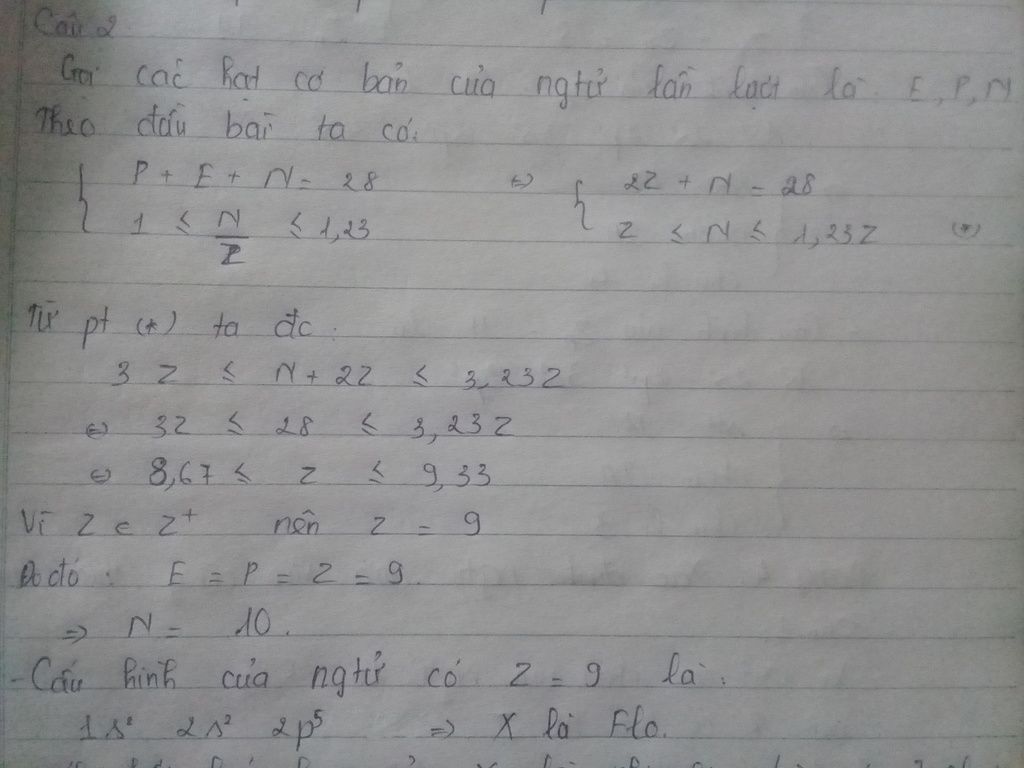 Câu 2.
Gọi các hạt cơ bản của ngtử lần lượt là E, P, N
Theo đầu bài ta có:
{ P + E + N = 28 ⇔ { 2Z + N = 28
1 ≤ N/Z ≤ 1,23 Z ≤ N ≤ 1,23Z (*)
Từ pt (*) ta đc :
3Z ≤ N + 2Z ≤ 3,23Z
⇔ 3Z ≤ 28 ≤ 3,23Z
⇔ 8,67 ≤ Z ≤ 9,33
Vì Z ∈ Z⁺ nên Z = 9
Do đó : E = P = Z = 9.
⇒ N = 10.
- Cấu hình của ngtử có Z = 9 là :
1s² 2s² 2p⁵ ⇒ X là Flo.